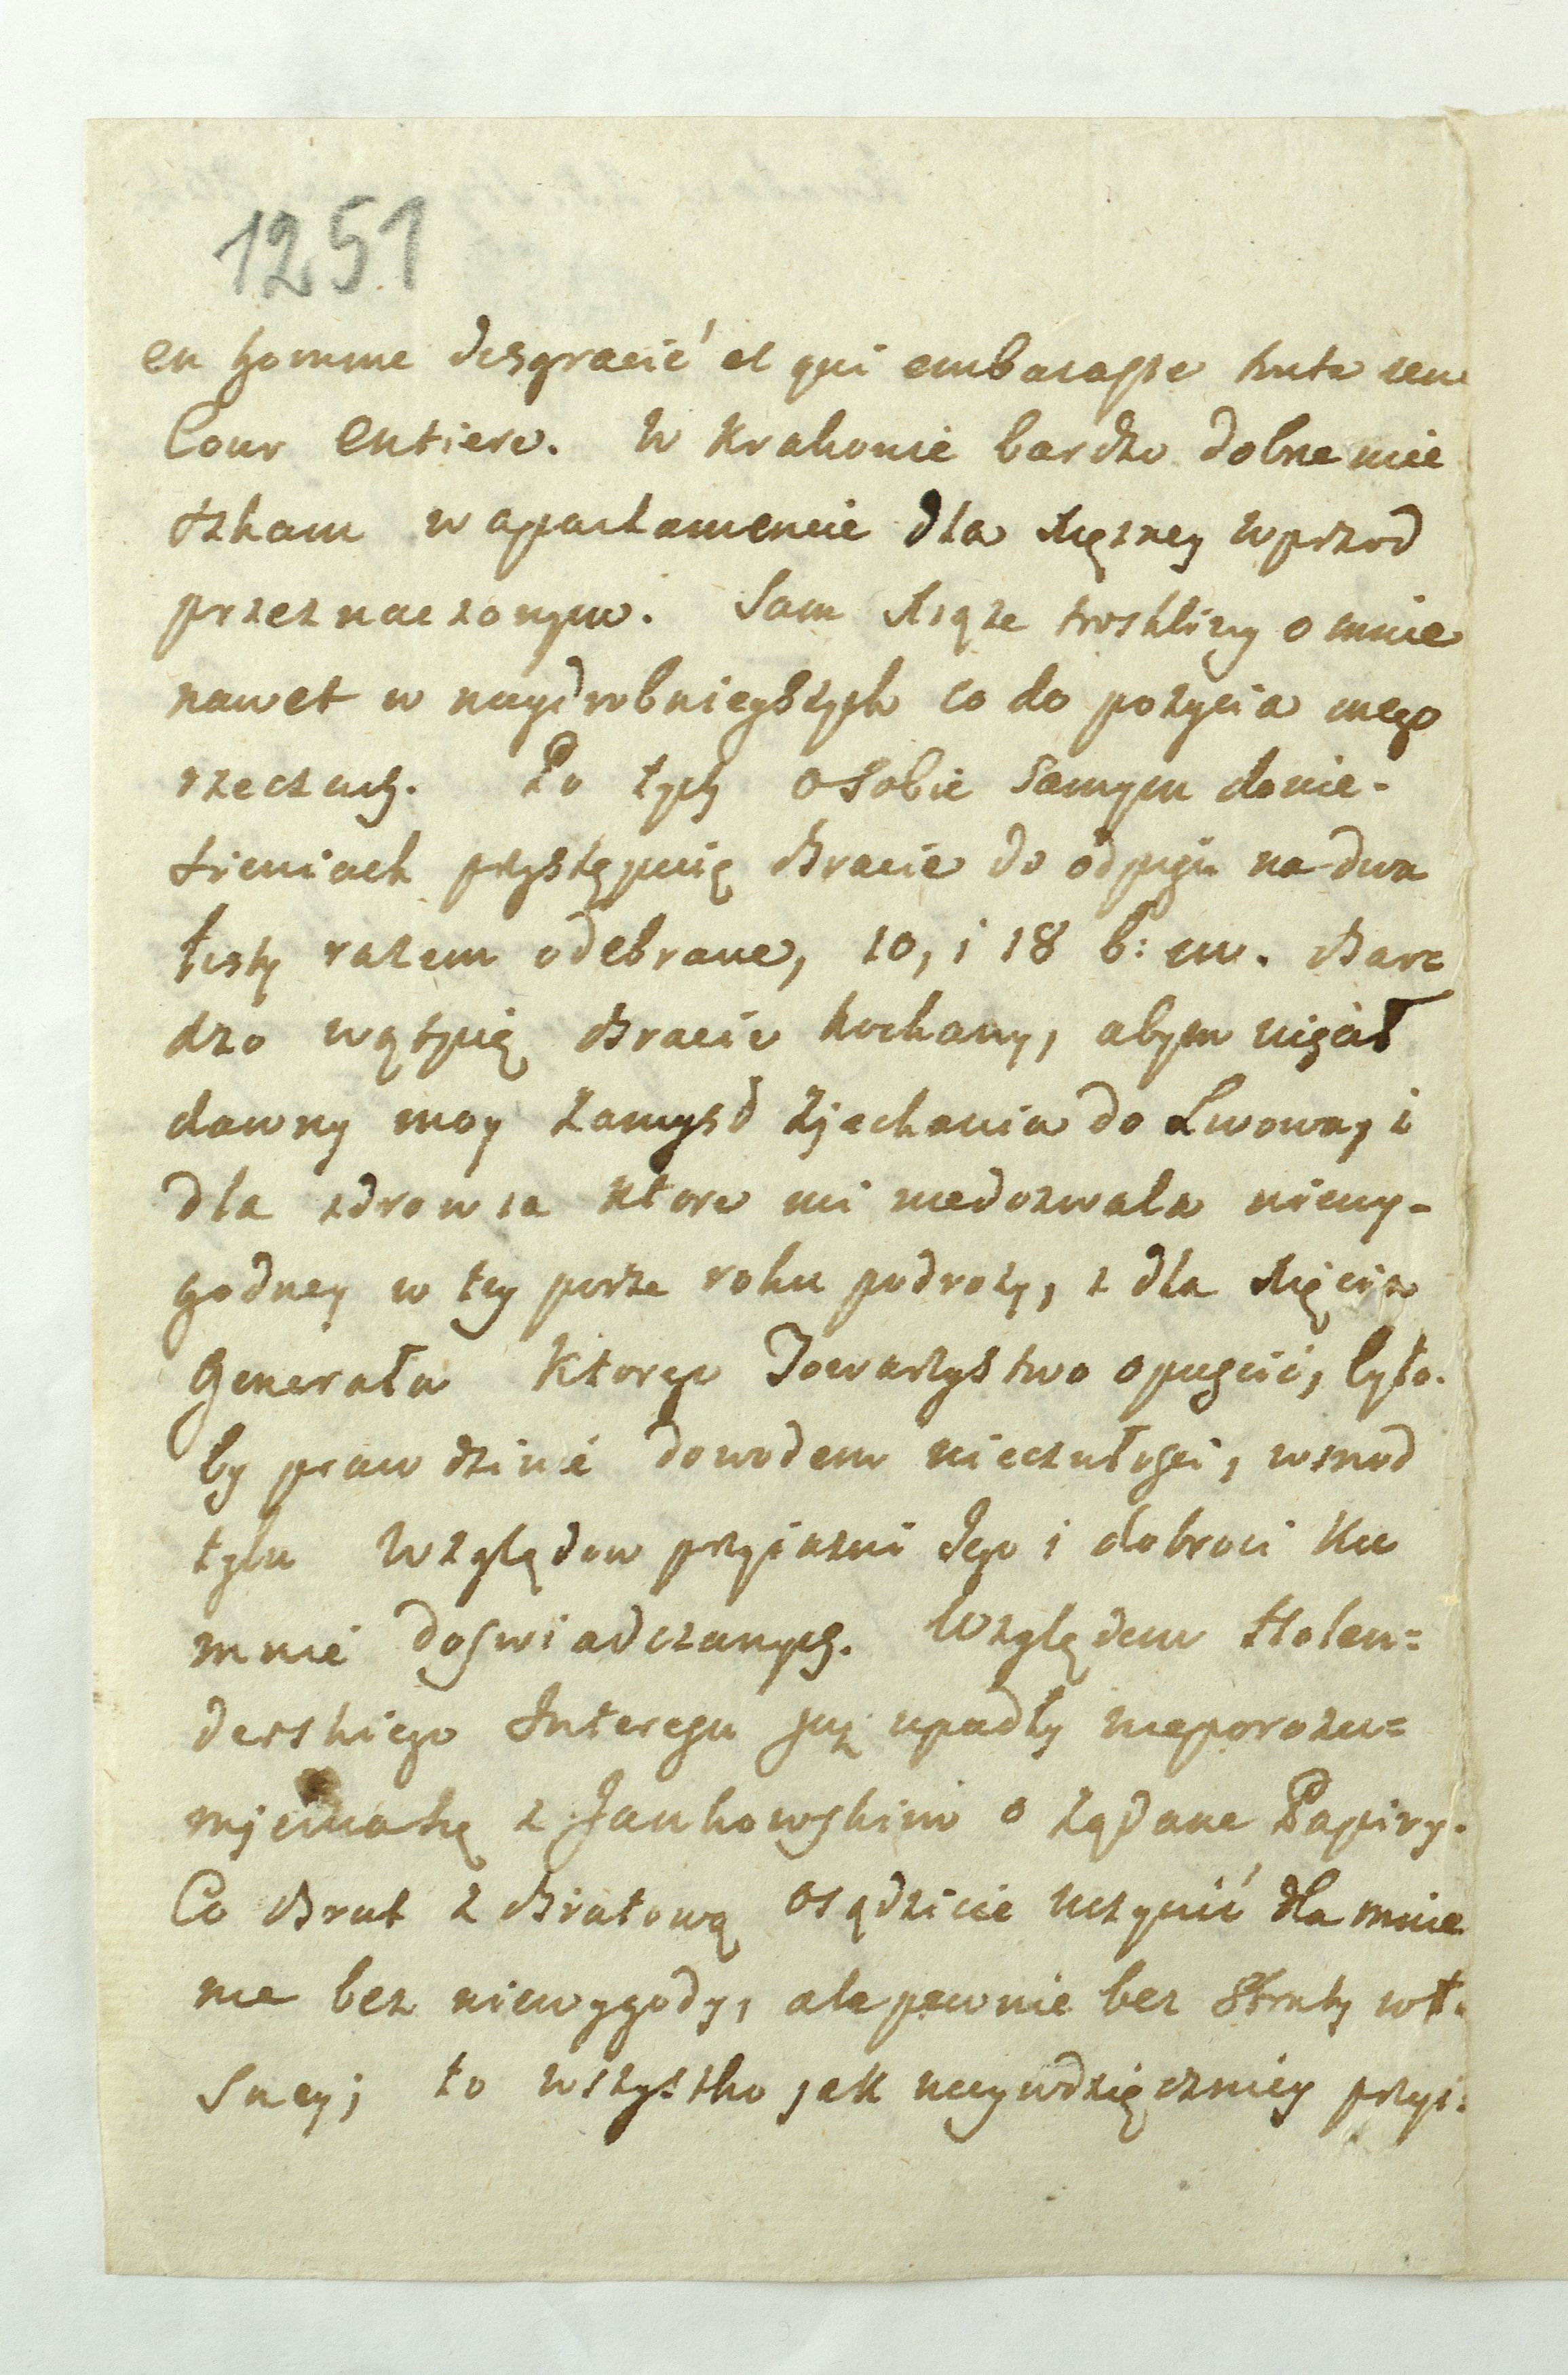 1251
en homme disgracié et qui embarasse toute une
Cour entiere. W Krakowie bardzo dobrze mie
szkam w apartamencie dla Xiężney wprzod
przeznaczonym. Sam Xiąże troskliwy o mnie
nawet w naydrobnieyszych co do pożycia mego
rzeczach. Po tych o sobie samym donie-
sieniach przystępuię Bracie do odpisu na dwa
listy razem odebrane, 10, i 18 b: m. Bar=
dzo wątpię Bracie kochany, abym uiścił
dawny moy zamysł zjechania do Lwowa, i
dla zdrowia ktore mi niedozwala niewy-
godney w tey porze roku podroży, i dla Xięcia
Generała ktorego Towarzystwo opuścić, było-
by prawdziwie dowodem nieczułości, wsrod
tylu względow przyiazni Jego i dobroci ku
mnie doświadczanych. Względem Holen=
derskiego Interesu już upadły nieporozu=
mienia z Jankowskim o żądane Papiry.
Co Brat z Bratową osądzicie uczynić dla mnie
nie bez niewygody, ale pewnie bez straty wł-
sney; to wszystko jak naywdzięczniey przyi: